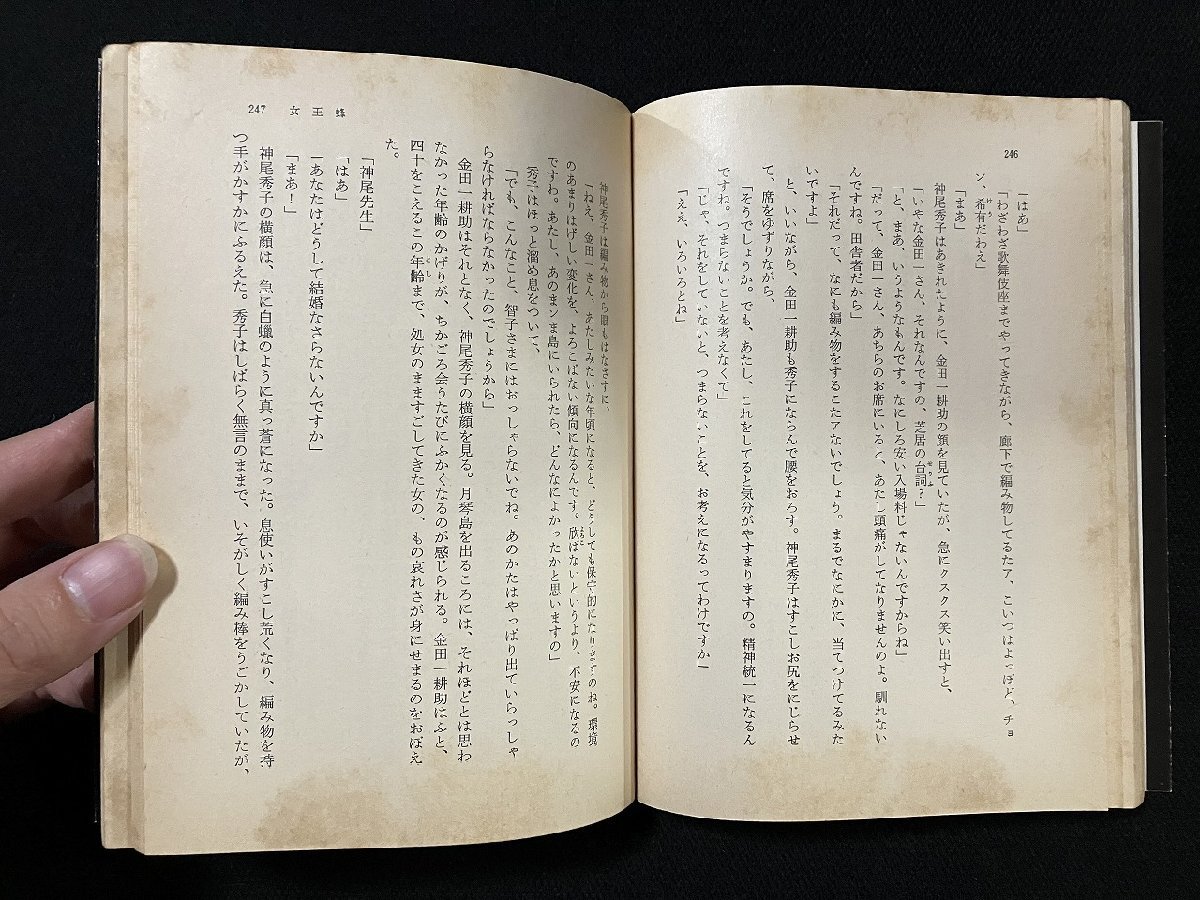 246
「はあ」
「わざわざ歌舞伎座までやってきながら、廊下で編み物してるたア、こいつはよっぽど、チョ
ン、希有だわえ」
「まあ」
神尾秀子はあきれたように、金田一耕助の顔を見ていたが、急にクスクス笑い出すと、
「いやな金田一さん、それなんですの、芝居の台詞？」
「と、まあ、いうようなもんです。なにしろ安い入場料じゃないんですからね」
「だって、金田一さん、あちらのお席にいると、あたし頭痛がしてなりませんのよ。馴れない
んですね。田舎者だから」
「それだって、なにも編み物をするこたアないでしょう。まるでなにかに、当てつけてるみた
いですよ」
と、いいながら、金田一耕助も秀子にならんで腰をおろす。神尾秀子はすこしお尻をにじらせ
て、席をゆずりながら、
「そうでしょうか。でも、あたし、これをしてると気分がやすまりますの。精神統一になるん
ですね。つまらないことを考えなくて」
「じゃ、それをしていないと、つまらないことを、お考えになるってわけですか」
「ええ、いろいろとね」
247 女王蜂
神尾秀子は編み物から眼もはなさずに、
「ねえ、金田一さん、あたしみたいな年頃になると、どうしても保守的になりますのね。環境
のあまりはげしい変化を、よろこばない傾向になるんです。欣ばないというより、不安になるの
ですわ。あたし、あのまンま島にいられたら、どんなによかったかと思いますの」
秀子はほっと溜め息をついて、
「でも、こんなこと、智子さまにはおっしゃらないでね。あのかたはやっぱり出ていらっしゃ
らなければならなかったのでしょうから」
金田一耕助はそれとなく、神尾秀子の横顔を見る。月琴島を出るころには、それほどとは思わ
なかった年齢のかげりが、ちかごろ会うたびにふかくなるのが感じられる。金田一耕助はふと、
四十をこえるこの年齢まで、処女のまますごしてきた女の、もの哀れさが身にせまるのをおぼえ
た。
「神尾先生」
「はあ」
「あなたはどうして結婚なさらないんですか」
「まあ！」
神尾秀子の横顔は、急に白蠟のように真っ蒼になった。息使いがすこし荒くなり、編み物を持
つ手がかすかにふるえた。秀子はしばらく無言のままで、いそがしく編み棒をうごかしていたが、